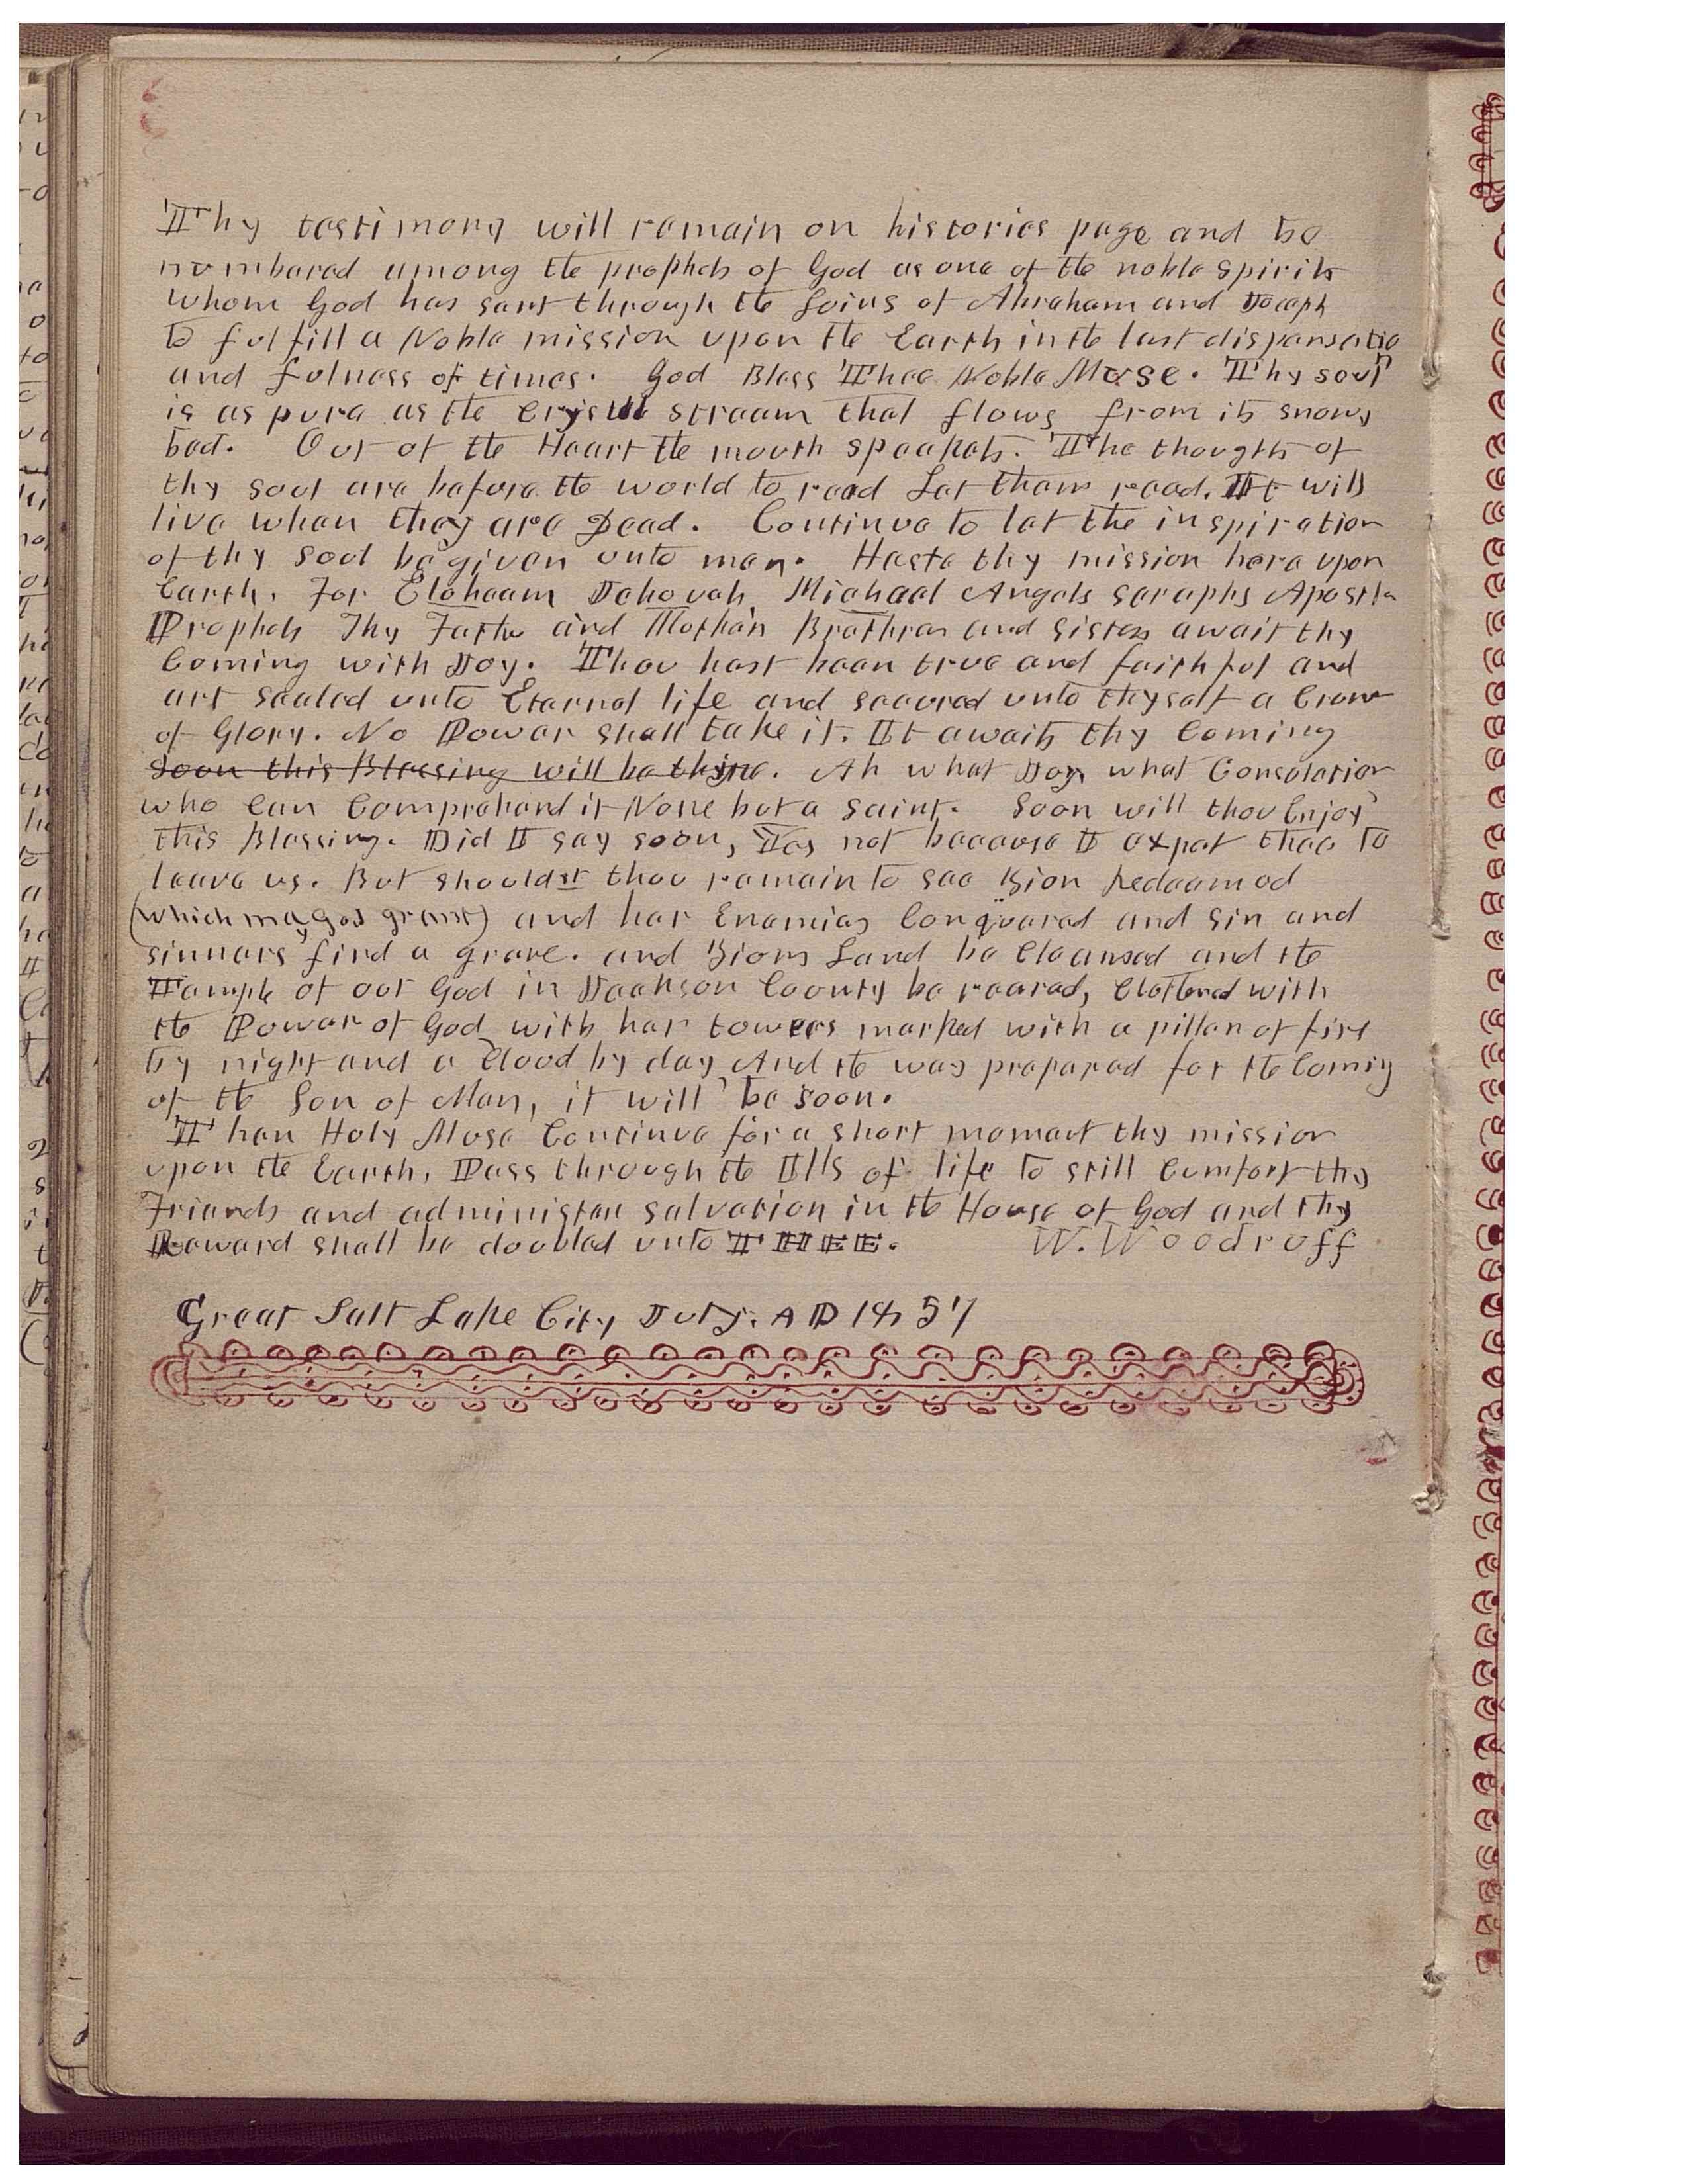 Thy testimony will remain on histories page and be
numbered among the prophets of God as one of the noble spirits
whom God has sent through the Loins of Abraham and Joseph
to fulfill a Noble mission upon the Earth in the last dispensatio
and fulness of times. God Bless Thee Noble Muse. Thy soul
is as pure as the Crystal stream that flows from its snowy
bed. Out of the Heart the mouth speaketh. The thougths of
thy soul are before the world to read Let them read. It will
live when they are Dead. Continue to let the inspiration
of thy soul be given unto men. Haste thy mission here upon
Earth. For Eloheem Jehovah, Michael Angels seraphs Apostle
Prophets Thy Father and Mother, Brethren and Sisters await thy
Coming with Joy. Thou hast been true and faithful and
art sealed unto Eternal life and secured unto thyself a Crown
of Glory. No Power shall take it. It awaits thy Coming
Soon this Blessing will be thine. Ah what Joy what Consolation
who Can Comprehend it None but a saint. Soon will thou Enjoy
this Blessing. Did I say soon, Yes not because I expet thee to
leave us. But shouldst thou remain to see Zion Redeemed
(which may God grant) and her Enemies Conquered and sin and
sinners find a grave. and Zions Land be Cleansed and the
Temple of our God in Jackson County be reared, Clothed with
the Power of God with her towers marked with a pillar of fire
by night and a Cloud by day And the way prepared for the Coming
of the Son of Man, it will be soon.
Then Holy Muse Continue for a short moment thy mission
upon the Earth, Pass through the Ills of life to still Comfort thy
Friends and administer salvation in the House of God and thy
Reward shall be doubled unto THEE. W. Woodruff
Great Salt Lake City July. AD 1857